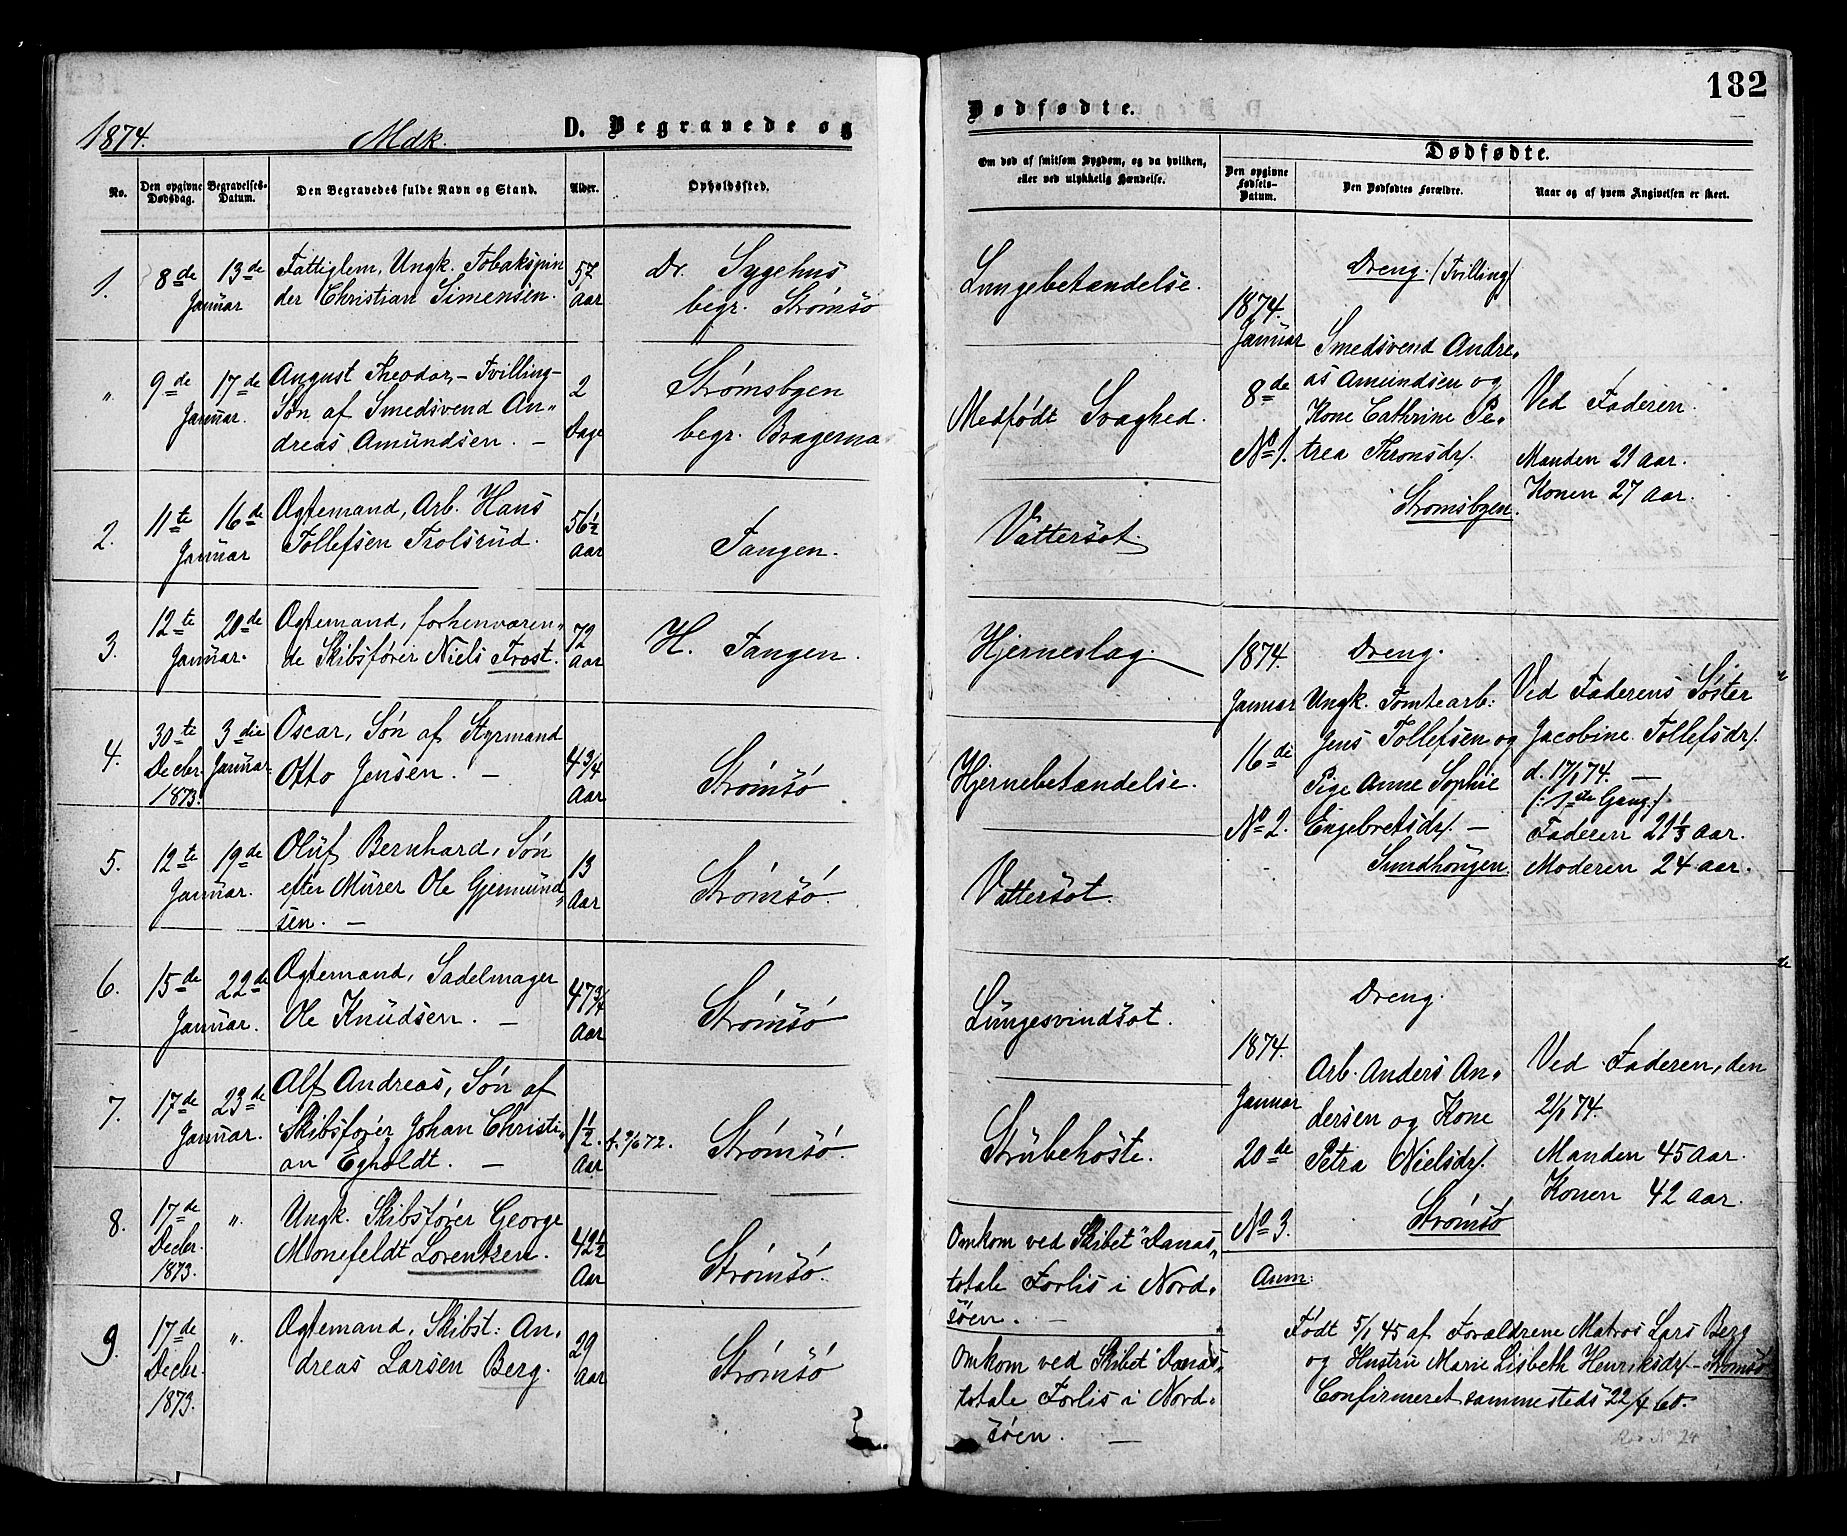 182
1874.
Mdk.
D. Begravede og
Dødfødte.
No.
Den opgivne Dødsdag.
Begravelses-Datum.
Den Begravedes fulde Navn og Stand.
Alder.
Opholdssted.
Om død af smitsom Sygdom, og da hvilken,
eller ved ulykkelig Hændelse.
Dødfødte.
Den opgivne Fødsels-Datum.
Den Dødfødtes Forældre.
Naar og af hvem Angivelsen er skeet.
1.
8de
13de
Januar
Fattiglem, Ungk. Tobakspin
der Christian Simensen.
57
Aar
Dr. Sygehus
begr. Strømsö
Lungebetændelse.
"
9de
17de
Januar.
August Theodor, - Tvilling-
Søn af Smedsvend An-
dreas Amundsen. -
2
Dage
Strømsbyen
begr. Bragernæs
Medfødt Svaghed.
2.
11te
16de
Januar
Ogtemand, Arb. Hans
Tollefsen Trolsrud.
56½
Aar
Tangen.
Vattersot.
3.
12te
20de
Januar.
Ogtemand, forhenværen-
de Skibsfører Niels Trost.
72
Aar
H. Tangen.
Hjerneslag.
4.
30te
Decbr.
1873.
3die
Januar.
Oscar, Søn af Styrmand
Otto Jensen. -
4¾
Aar
Strømsö
Hjernebetændelse.
5.
12te
19de
Januar.
Oluf Bernhard, Søn
efter Murer Ole Gjermund-
sen. -
13
Aar
Strømsö.
Vattersot.
6.
15de
22de
Januar.
Ogtemand, Sadelmager
Ole Knudsen. -
47¾
Aar
Strømsö
Lungesvindsot.
7.
17de
23de
Januar.
Alf Andreas, Søn af
Skibsfører Johan Christi-
an Egholdt. -
1½
Aar
f. 9/6 72.
Strømsö.
Strubehoste.
8.
17de
Decbr.
1873.
"
Ungk. Skibsfører George
Monefeldt Lorentzen.
42½
Aar
Strømsö.
Omkom ved Skibet "Danas"
totale Forlis i Nord-
søen. -
9.
17de
Decbr.
1873.
"
Ogtemand, Skibst: An-
dreas Larsen Berg.
29
Aar
Strømsö
Omkom ved Skibet "Danas"
totale Forlis i Nord-
søen. -
1874.
Januar
8de
No 1.
Dreng. (Tvilling)
Smedsvend Andre-
as Amundsen og
Kone Cathrine Pe-
trea Thronsdr.
Strømsbyen.
Ved Faderen.
Manden 21 Aar.
Konen 27 Aar.
1874.
Januar
16de
No 2.
Dreng.
Ungk. Tomtearb:
Jens Tollefsen og
Pige Anne Sophie
Engebretsdr. -
Sundhougen.
Ved Faderens Søster
Jacobine Tollefsdr.
d. 17/1 74. -
(: 1de Gang.)
Faderen 21⅓ Aar.
Moderen 24 Aar.
1874.
Januar
20de
No 3.
Dreng.
Arb. Anders An-
dersen og Kone
Petra Nielsdr.
Strømsö
Ved Faderen, den
21/1 74.
Manden 45 Aar.
Konen 42 Aar.
Anm:
Født 5/1 45 af Forældrene Matros Lars Berg
og Hustru Marie Lisbeth Henriksdr. - Strømsö.
Confirmeret sammesteds 22/4 60.